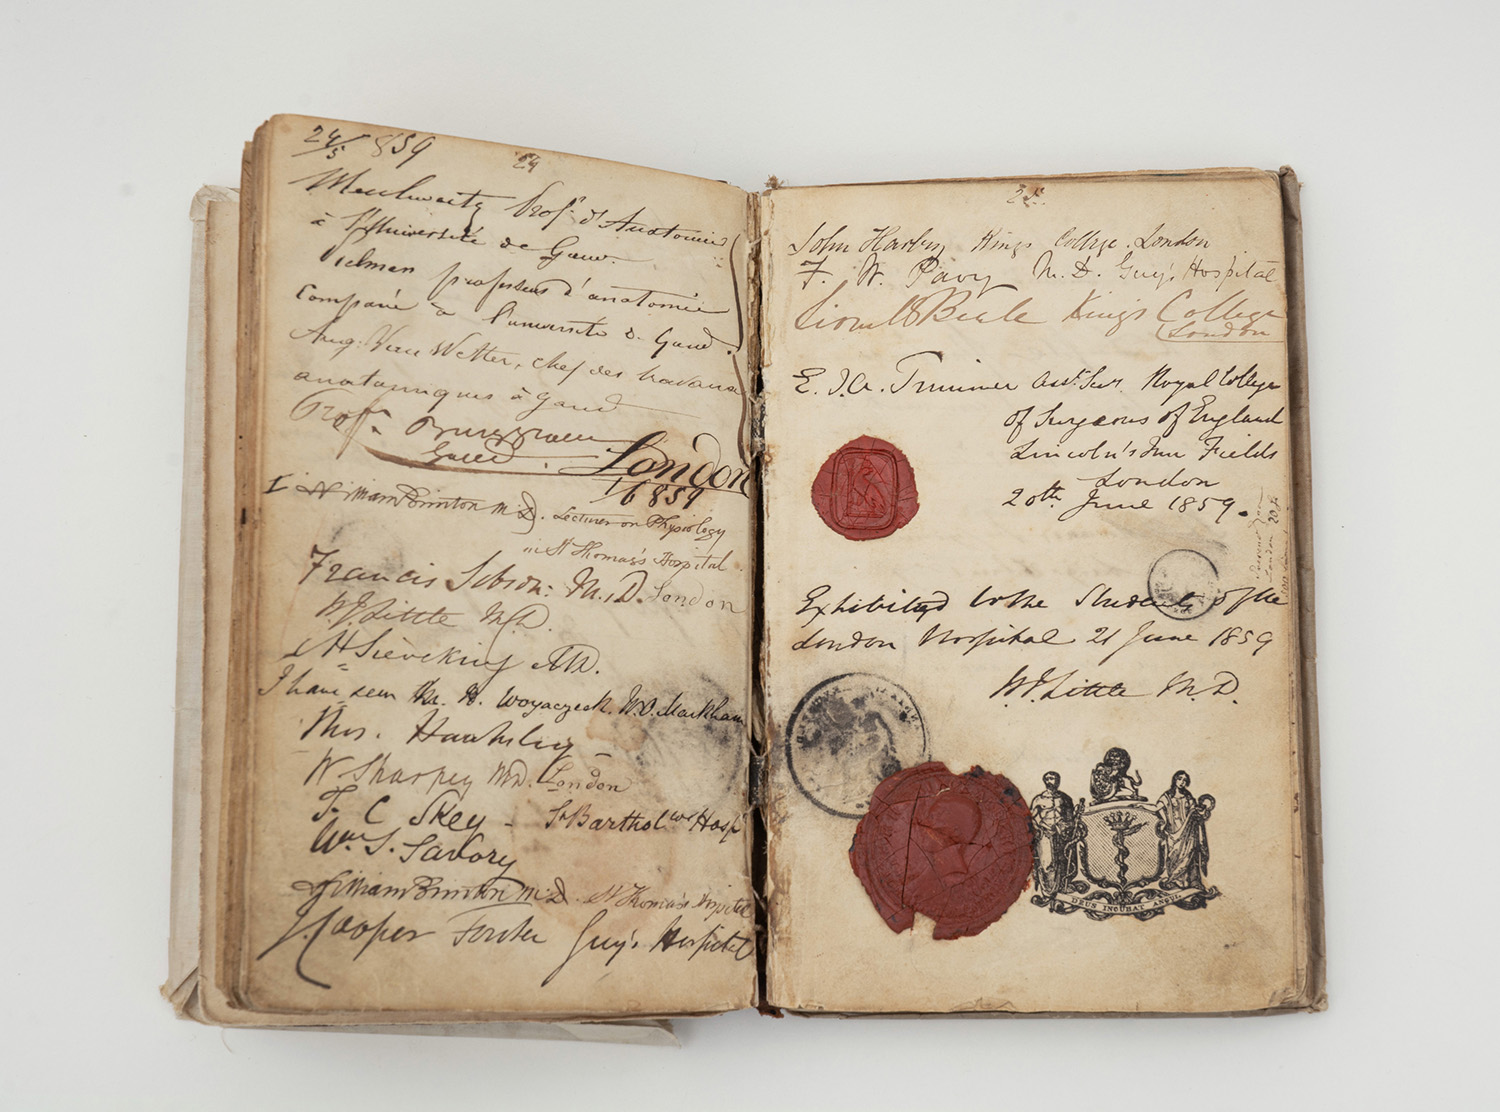 24/5 859
24
Prof. d'Anatomie
à l'Université de Gand.
professeur d'anatomie
comparée à l'université de Gand.
Aug. Van Wetter, chef des travaux
anatomiques à Gand
Prof.
Gand.
London
1/6 859
I William Brinton M.D. Lecturer on Physiology
in St Thomas's Hospital
Francis Sibson: M.D. London
W.J. Little M.D.
Sieveking M.D.
I have seen Mr. Woyaczeck. W.O. Markham
Thos. Hawksley
W Sharpey M.D. London
F. C Skey - St Bartholws Hosp
Wm. S. Savory
William Brinton M.D. St Thomas's Hospital
J. Cooper Forster Guy's Hospital
25.
John Harley Kings College. London
F. W. Pavy M.D. Guy's Hospital
Lionel S Beale King's College
London
E. Trimmer Asst. Secy Royal College
of Surgeons of England
Lincoln's Inn Fields
London
20th June 1859.
London 20
Exhibited to the Students of the
London Hospital 21 June 1859
W.J. Little M.D.
DEUS INCUBAT ANGUI